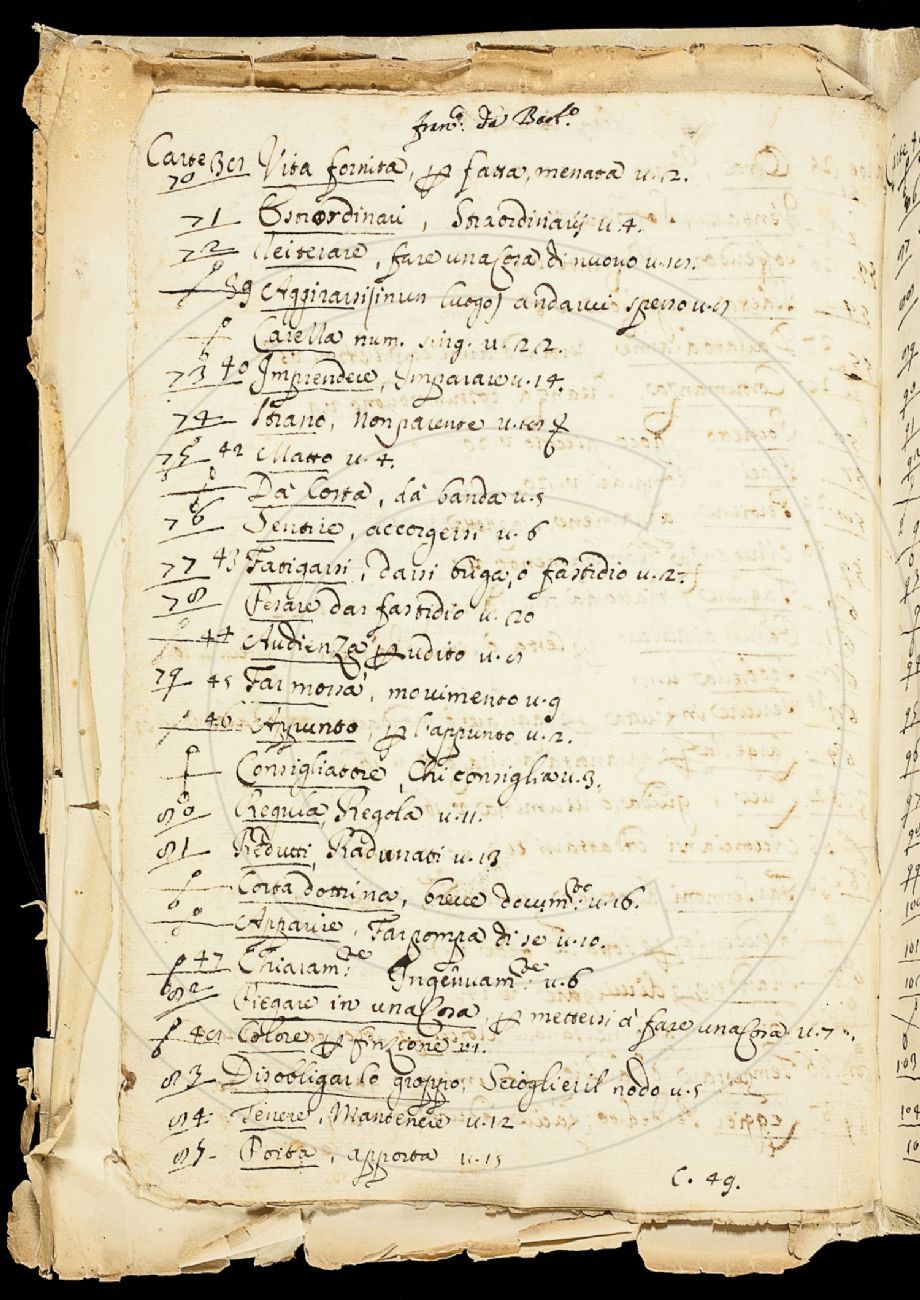 Franc.º da Barb.º
Carte 38 Vita fornita, p fatta, menata u. 2.
70
71 Estraordinari, Straordinarij u. 4.
72 Reiterare, fare una Cosa di nuovo u. 18.
39 Aggirarsi (in un luogo) andarvi spesso u. 8
Carella num. sing. u. 22.
73 40 Imprendere, Imparare u. 14.
74 Strano, Non parente u. 18
75 42 Matto u. 4.
Da Costa, da banda u. 5
76 Sentire, accorgersi u. 6
77 43 Fatigarsi, darsi briga, ò fastidio u. 2.
78 Pesare dar fastidio u. 20
44 Audienza p udito u. 8
79 45 Far mossa, movimento u. 9
46 Appunto, p l'appunto u. 2.
Consigliatore, Chi consiglia u. 3.
80 Regula, Regola u. 11.
81 Redutti, Radunati u. 13
Corta dottrina, breve docum.to u. 16.
Apparire, Far pompa di se u. 10.
47 Chiaram.te Ingênuam.te u. 6
82 Piegare in una Cosa, p mettersi à fare una Cosa u. 7.
48 Colore p finzione u. 1.
83 Disobligar lo groppo, Sciogliere il nodo u. 5
84. Tenere, Mantenere u. 12
85. Porta, apporta u. 15
C. 49.